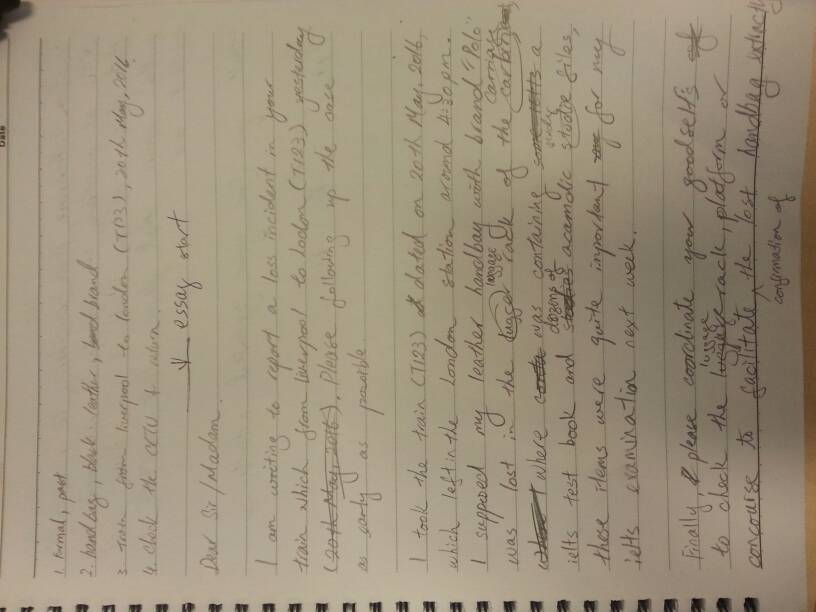 Date
1. Formal, past
2. handbag, black leather, brand
3. Train from liverpool to london (T123), 20th May, 2016
4. Check the CCTV & return.
essay start
Dear Sir/Madam.
I am writing to report a loss incident in your
train which from Liverpool to London (T123) yesterday
(20th May, 2016). Please following up the case
as early as possible
I took the train (T123) dated on 20th May, 2016,
which left in the London station around 4:30pm.
I supposed my leather handbag with brand "Polo"
was lost in the luggage rack of the carriage,
where was containing a
ielts test book and dozens of acamdic study files,
these items were quite important for my
ielts examination next week.
Finally, please coordinate your goodself's
to check the luggage rack, platform or
concourse to facilitate the lost handbag
confirmation of